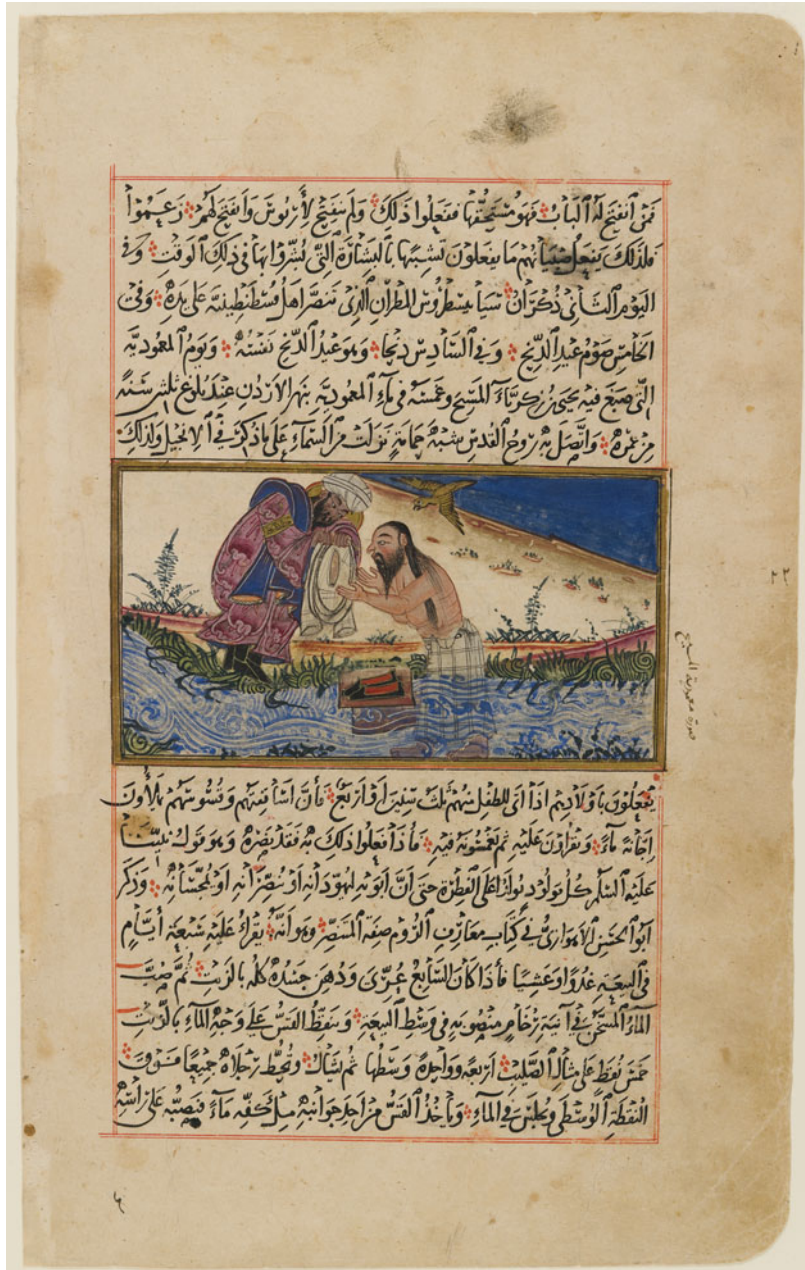 فمن انفتح له الباب فهو مستحقها ففعلوا ذلك ولم ينفتح لأريوس وانفتح لهم زعموا
فلذلك يفعل صبيانهم ما يفعلون تشبيها بالبشارة التي بشروا بها في ذلك الوقت وفي
اليوم الثاني ذكران المطران الذي تنصر اهل قسطنطينية على يده وفي
الخامس صوم عيد الدنح وفي السادس دنحا وهو عيد الدنح نفسه ويوم المعمودية
التي صبغ فيه يحيى بن زكرياء المسيح وغمسه في ماء المعمودية بنهر الاردن عند بلوغ ثلثين سنة
من عمره واتصل به روح القدس شبه حمامة نزلت من السماء على ما ذكر في الانجيل ولذلك
صورة معمودية المسيح
٢٢
يفعلون باولادهم اذا اتى للطفل منهم ثلث سنين او اربع فأن اساقفتهم وقسوسهم يملأون
اجانة ماء ويقرأون عليه ثم يغمسونه فيه فأذا فعلوا ذلك به فقد نصره وهو قول نبينا
عليه السلم كل مولود يولد على الفطرة حتى ان ابويه ليهودانه او ينصرانه او يمجسانه وذكر
ابو الحسين الاهوازي في كتاب معارف الروم صفة التنصر وهو انه يقرأ عليه سبعة أيام
في البيعة غدوا وعشيا فأذا كان السابع عرى ودهن جسده كله بالزيت ثم صب
الماء المسخن في آنية رخام منصوبة في وسط البيعة وينقط القس على وجه الماء بالزيت
خمس نقط على مثال الصليب اربعة وواحدة وسطها ثم يشال وتحط رجلاه جميعا فوق
النقطة الوسطى ويجلس في الماء ويأخذ القس من احد جوانبه ملء كفه ماء فيصبه على رأسه